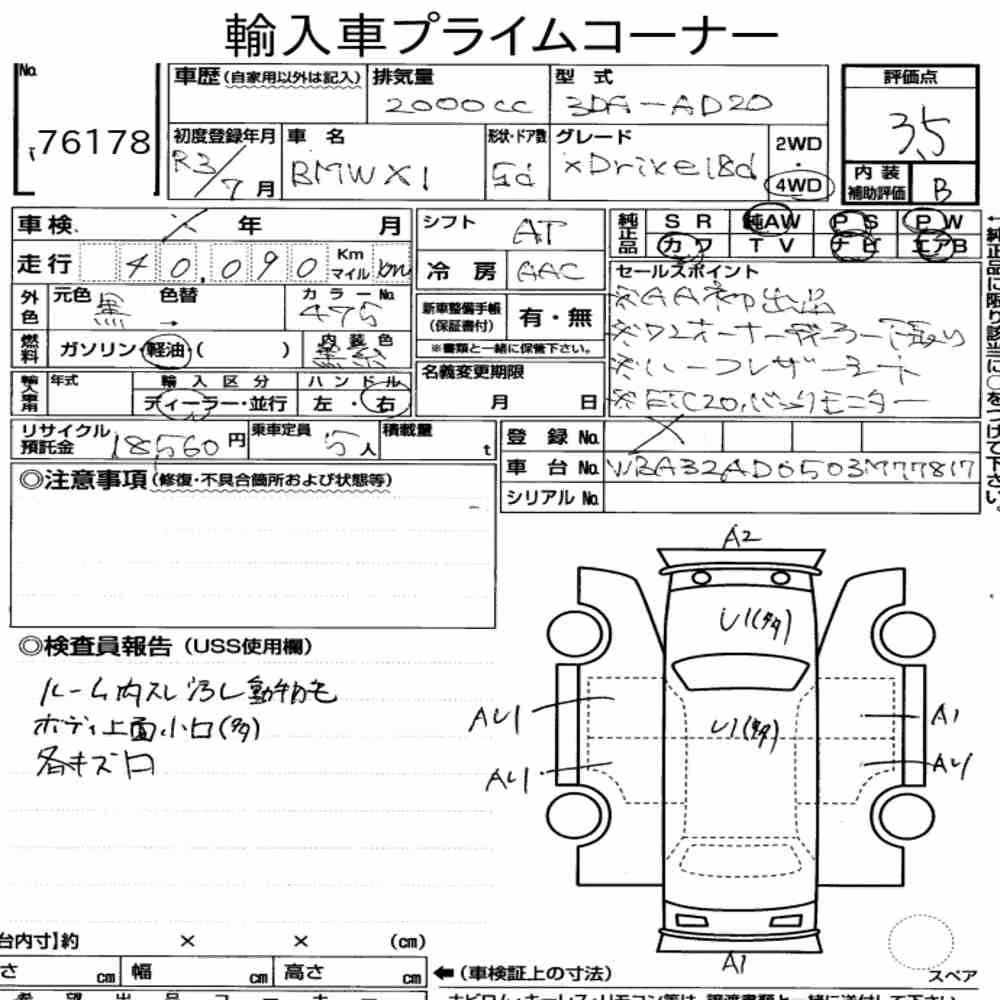 輸入車プライムコーナー
No. 76178
車歴(自家用以外は記入) 排気量 2000cc 型式 3DA-AD20
評価点 3.5
初度登録年月 R3/7月 車名 BMW X1 形状・ドア数 5d グレード xDrive18d 2WD・4WD
内装補助評価 B
車検 × 年 月 シフト AT
純正品 SR 純AW PS PW
カワ TV ナビ エアB
走行 40,090 Km マイル km 冷房 AAC
外色 元色 黒 色替 → カラーNo. 475
新車整備手帳(保証書付) 有・無
※書類と一緒に保管下さい。
燃料 ガソリン・軽油・( ) 内装色
輸入車用 年式 輸入区分 ディーラー・並行 ハンドル 左・右
名義変更期限 月 日
セールスポイント
※AA初出品
※ワンオーナー
※ハーフレザーシート
※ETC2.0、バックモニター
←純正品に限り該当に○をつけて下さい。
リサイクル預託金 18,560円 乗車定員 5人 積載量 t
登録No. ×
車台No. WBA32AD0503M77817
シリアルNo.
◎注意事項(修復・不具合箇所および状態等)
◎検査員報告(USS使用欄)
ルーム内スレ汚レ動物毛
ボディ上面小凹(多)
各キズ凹
A2
U1(多)
U1(多)
AU1
AU1
A1
AU1
A1
スペア
台内寸】約 × × (cm)
さ cm 幅 cm 高さ cm
←(車検証上の寸法)
希望出品コーナー
ナビロム・キーレス・リモコン等は、譲渡書類と一緒に送付して下さい